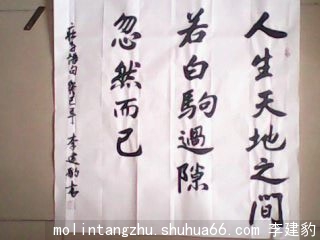 人生天地之間
若白駒過隙
忽然而已
莊子語句 癸巳年 李建豹書
molintangzhu.shuhua66.com 李建豹